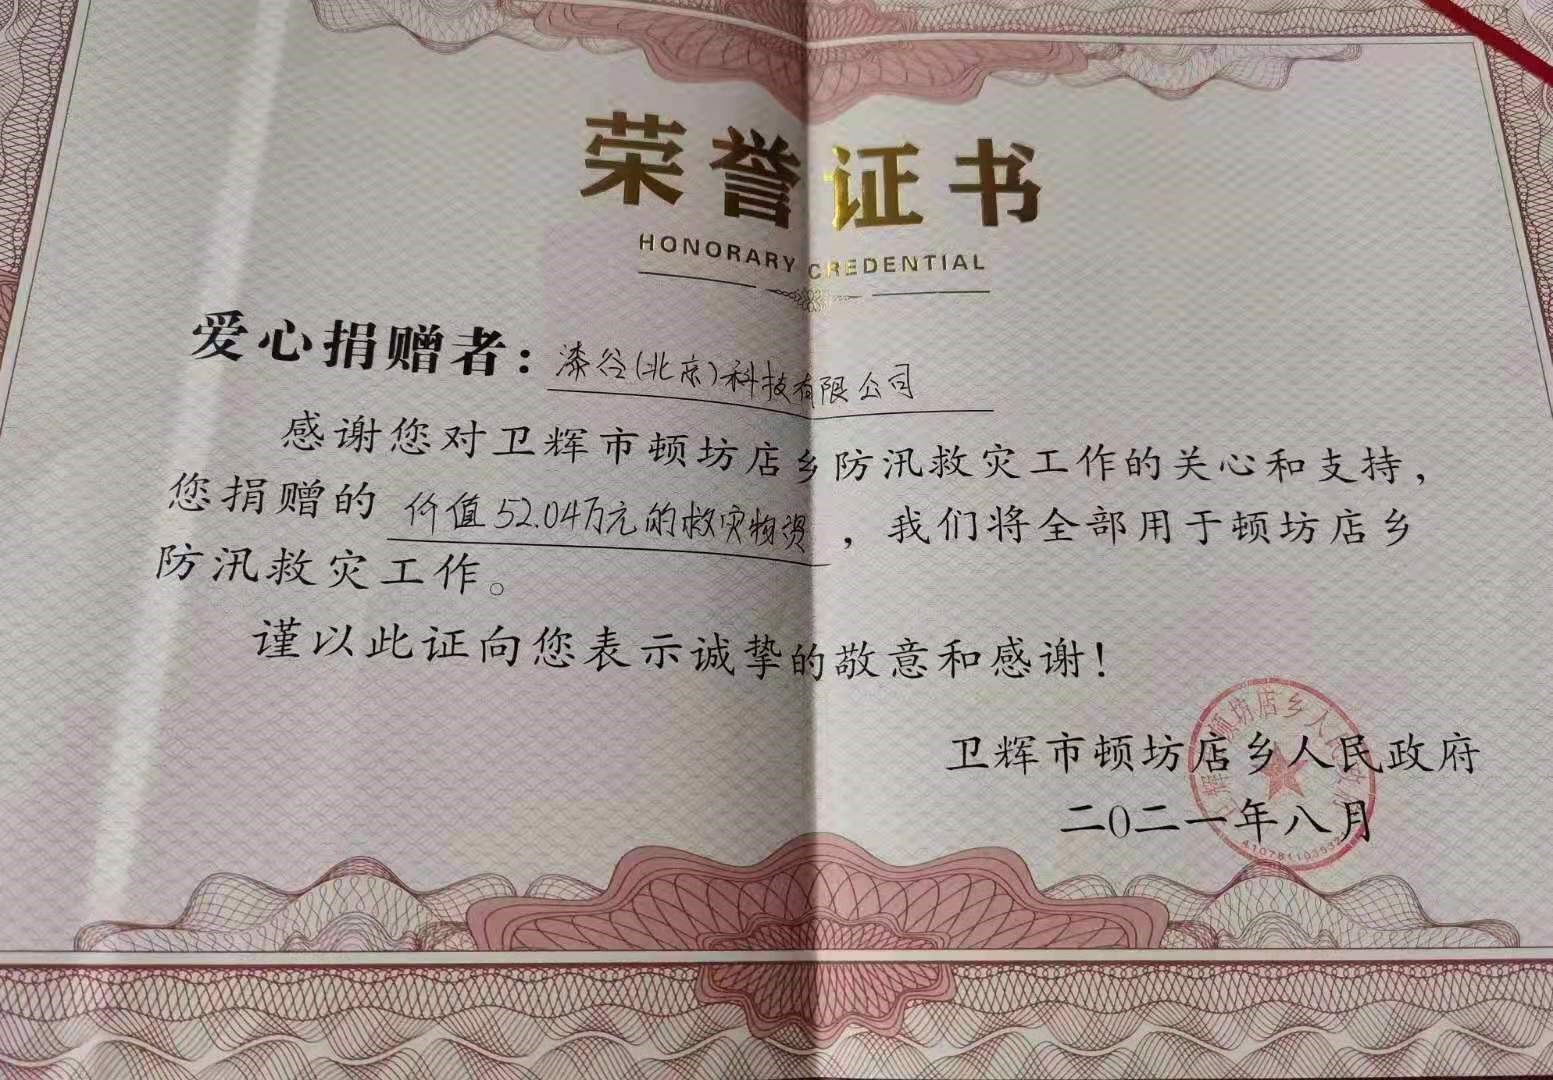 荣誉证书
HONORARY CREDENTIAL
爱心捐赠者：漆谷(北京)科技有限公司
感谢您对卫辉市顿坊店乡防汛救灾工作的关心和支持，
您捐赠的 价值52.04万元的救灾物资 ，我们将全部用于顿坊店乡
防汛救灾工作。
谨以此证向您表示诚挚的敬意和感谢！
卫辉市顿坊店乡人民政府
二〇二一年八月